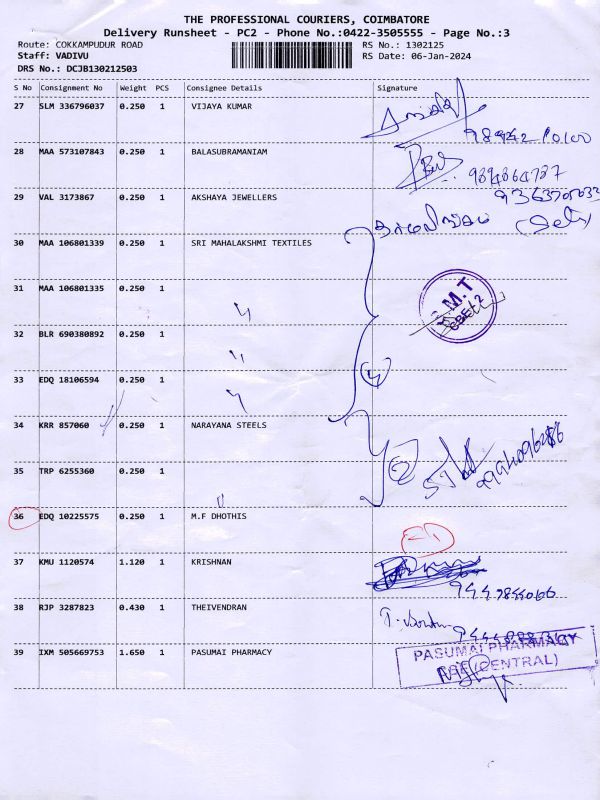 THE PROFESSIONAL COURIERS, COIMBATORE
Delivery Runsheet - PC2 - Phone No.:0422-3505555 - Page No.:3
Route: COKKAMPUDUR ROAD RS No.: 1302125
Staff: VADIVU RS Date: 06-Jan-2024
DRS No.: DCJB130212503
S No Consignment No Weight PCS Consignee Details Signature
27 SLM 336796037 0.250 1 VIJAYA KUMAR
28 MAA 573107843 0.250 1 BALASUBRAMANIAM
29 VAL 3173867 0.250 1 AKSHAYA JEWELLERS
30 MAA 106801339 0.250 1 SRI MAHALAKSHMI TEXTILES
31 MAA 106801335 0.250 1
S.M.T
32 BLR 690380892 0.250 1
33 EDQ 18106594 0.250 1
34 KRR 857060 0.250 1 NARAYANA STEELS
35 TRP 6255360 0.250 1
36 EDQ 10225575 0.250 1 M.F DHOTHIS
37 KMU 1120574 1.120 1 KRISHNAN
38 RJP 3287823 0.430 1 THEIVENDRAN
39 IXM 505669753 1.650 1 PASUMAI PHARMACY
PASUMAI PHARMACY
(CENTRAL)